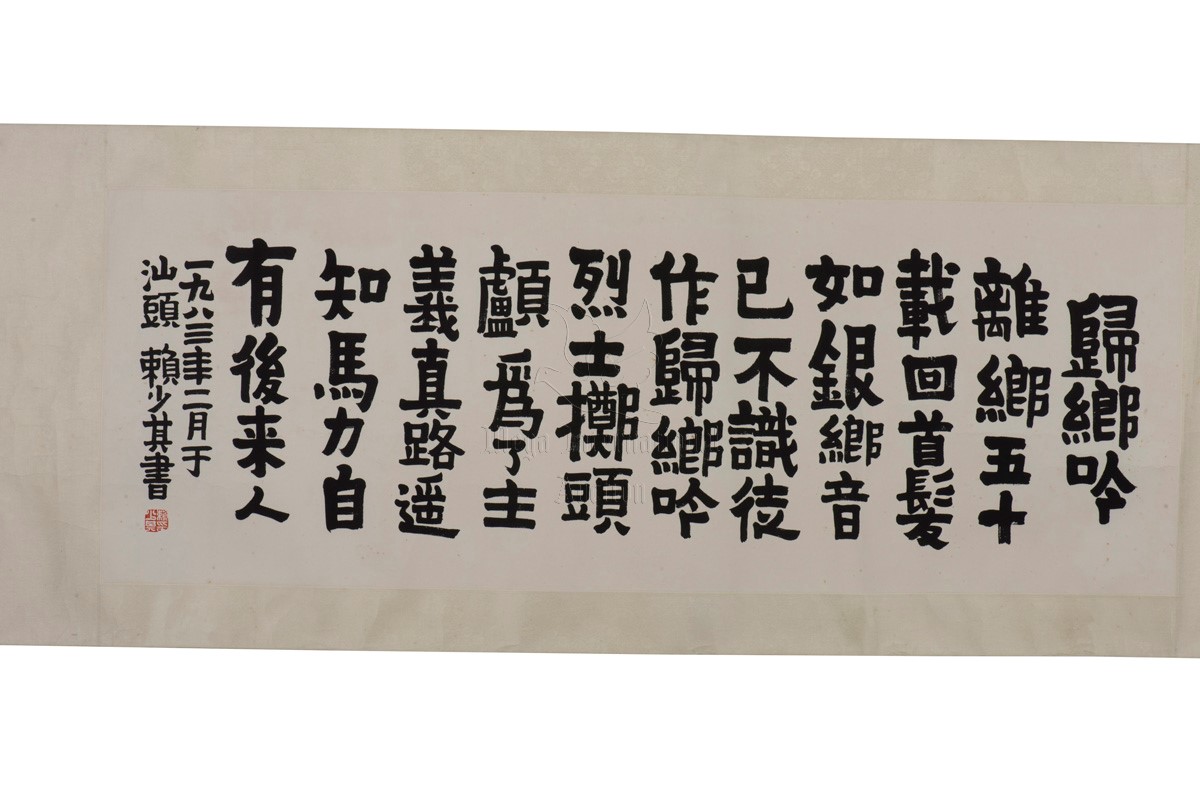 歸鄉吟
離鄉五十
載回首髮
如銀鄉音
已不識徒
作歸鄉吟
烈士擲頭
顱爲了主
義真路遥
知馬力自
有後来人
一九八三年二月于
汕頭 賴少其書